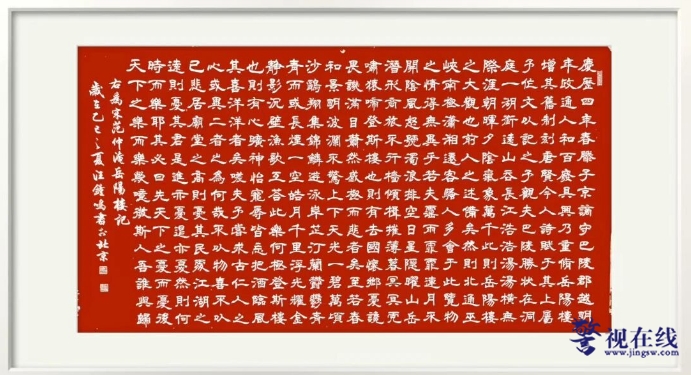 慶歷四年春滕子京謫守巴陵郡越明
年政通人和百廢具興乃重脩岳陽樓
增其舊制刻唐賢今人詩賦于其上屬
予作文以記之予觀夫巴陵勝狀在洞
庭一湖銜遠山吞長江浩浩湯湯橫無
際涯朝暉夕陰氣象萬千此則岳陽樓
之大觀也前人之述備矣然則北通巫
峽南極瀟湘遷客騷人多會于此覽物
之情得無異乎若夫霪雨霏霏連月不
開陰風怒號濁浪排空日星隱曜山岳
潛形商旅不行檣傾楫摧薄暮冥冥虎
嘯猿啼登斯樓也則有去國懷鄉憂讒
畏譏滿目蕭然感極而悲者矣至若春
和景明波瀾不驚上下天光一碧萬頃
沙鷗翔集錦鱗游泳岸芷汀蘭鬱鬱青
青而或長煙一空皓月千里浮光耀金
靜影沉璧漁歌互答此樂何極登斯樓
也則有心曠神怡寵辱皆忘把酒臨風
其喜洋洋者矣嗟夫予嘗求古仁人之
心或異二者之為何哉不以物喜不以
己悲居廟堂之高則憂其民處江湖之
遠則憂其君是進亦憂退亦憂然則何
時而樂耶其必曰先天下之憂而憂後
天下之樂而樂歟噫微斯人吾誰與歸
右為宋范仲淹岳陽樓記
之夏汪鍾鳴書於北京
警视在线
www.jingsw.com